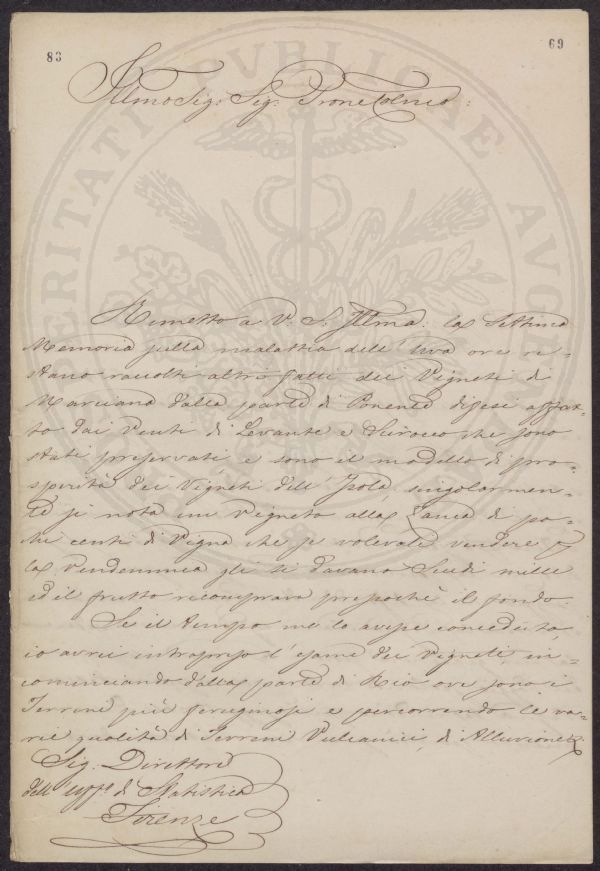 83
69
Illmo Sig: Sig: Prone Colmo:
Rimetto a V. S. Illma: la Settima
Memoria sulla malattia dell' Uva ove re-
stano raccolti altri fatti dei Vigneti di
Marciana dalla parte di Ponente difesi affat-
to dai Venti di Levante e Scirocco che sono
stati preservati e sono il modello di pro-
sperità dei Vigneti dell' Isola, singolarmen-
te si nota un Vigneto alla Zanca di po-
chi centi di Vigna che si volevate vendere p
la Vendemmia gli si davano Scudi mille
ed il frutto ricomprava presochè il fondo.
Se il tempo me lo avesse conceduto,
io avrei intrapreso l'esame dei Vigneti in-
cominciando dalla parte di Rio ove sono i
Terreni più feruginosi e percorrendo le va-
rie qualità di Terreni Vulcanici, di Alluvione
Sig. Direttore
dell' Uffo. di Statistica
Firenze
VERITATI PVBLICAE AVGEN